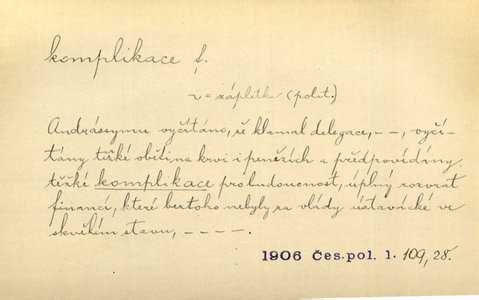 komplikace f.
~ = zápletka (polit.)
Andrássymu vyčítáno, že klamal delegace, – –, vyčí-
tány těžké oběti na krvi i penězích a předpovídány
těžké komplikace pro budoucnost, úplný rozvrat
financí, které beztoho nebyly za vlády ústavácké ve
skvělém stavu, – – – –.
1906 Čes. pol. 1. 109, 28.